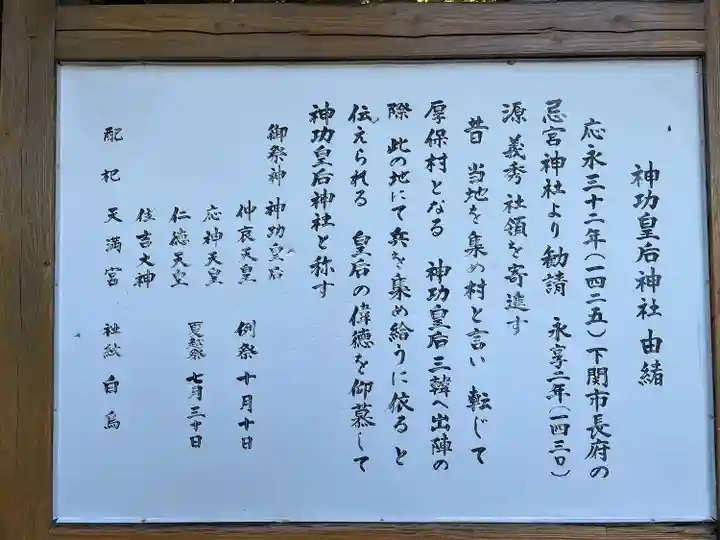 神功皇后神社 由緒
応永三十二年(一四二五)下関市長府の
忌宮神社より勧請 永享二年(一四三〇)
源 義秀 社領を寄進す
昔 当地を集め村と言い 転じて
厚保村となる 神功皇后 三韓へ出陣の
際 此の地にて兵を集め給うに依ると
伝えられる 皇后の偉徳を仰慕して
神功皇后神社と称す
御祭神 神功皇后
仲哀天皇 例祭 十月十日
応神天皇
仁徳天皇 夏越祭 七月三十日
住吉大神
配祀 天満宮 社紋 白鳥